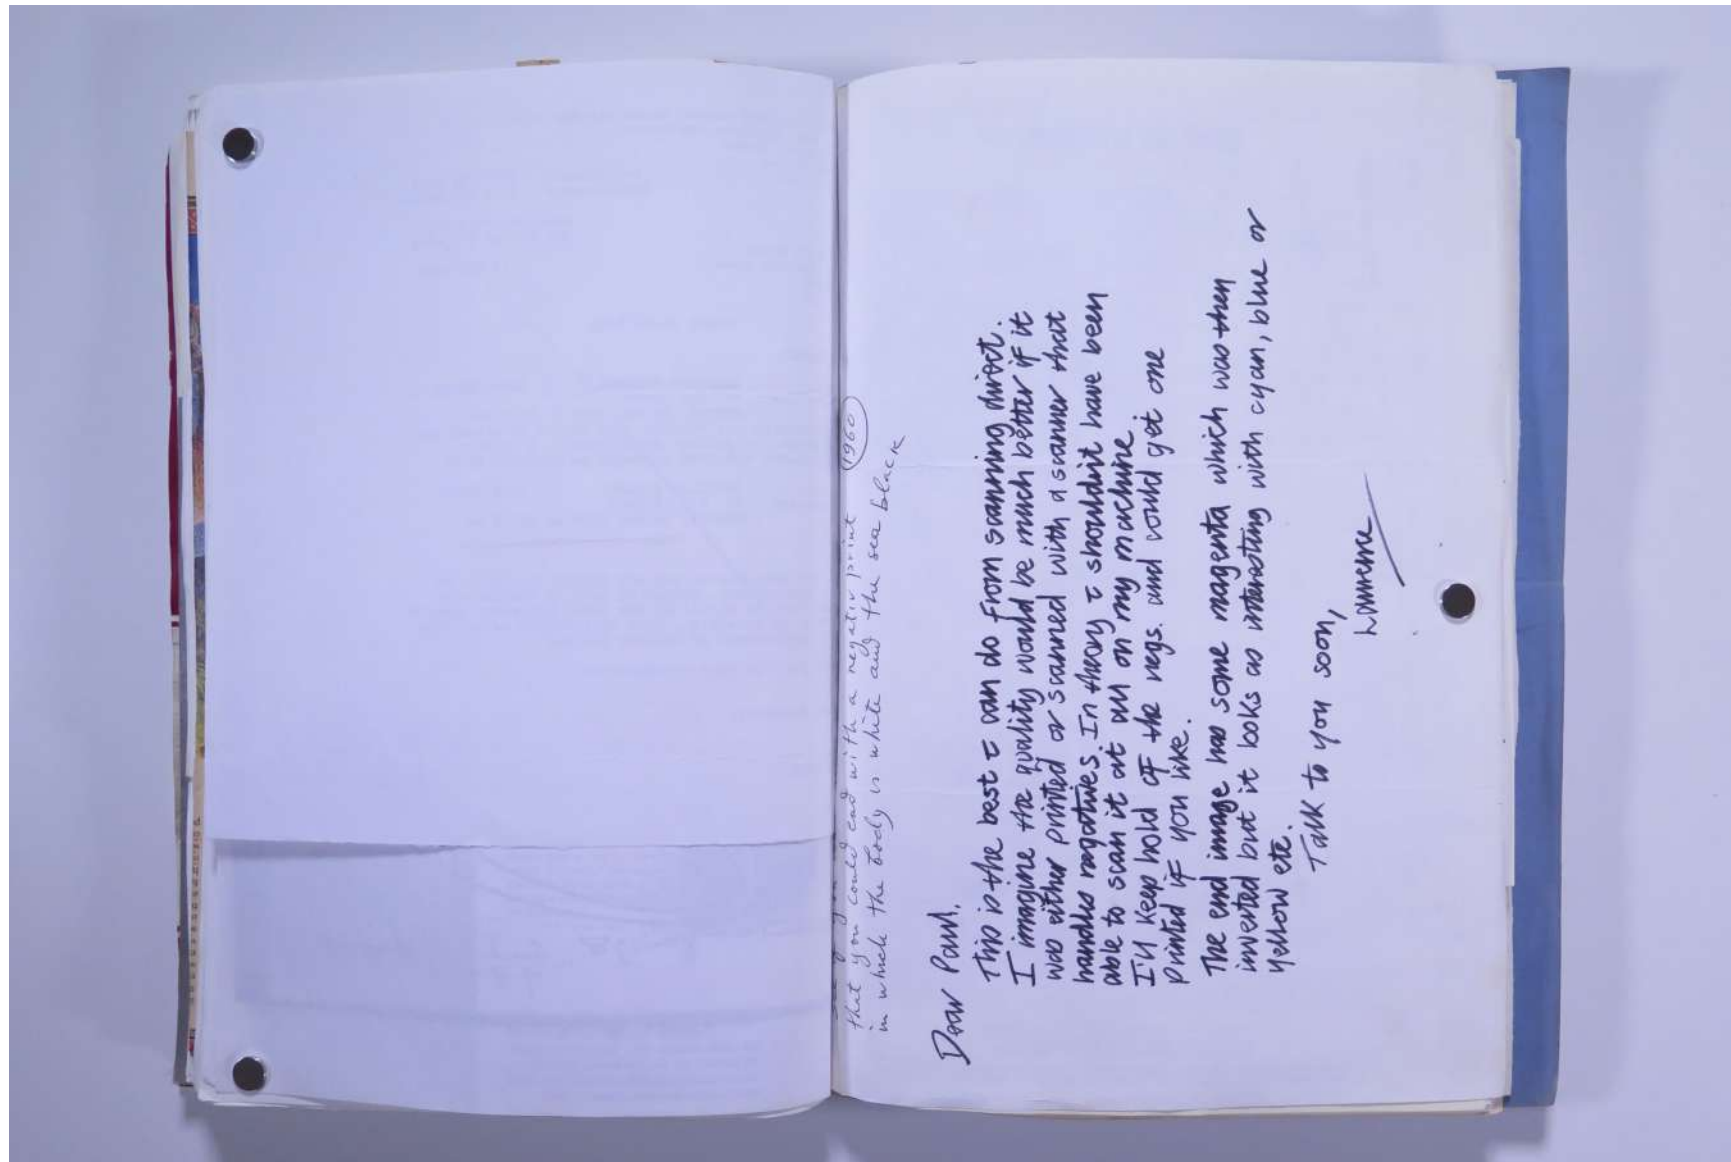 that you could end with a negativ print 1960
in which the body is white and the sea black
Dear Paul,
This is the best I can do from scanning direct.
I imagine the quality would be much better if it
was either printed or scanned with a scanner that
handles negatives. In theory I shouldn't have been
able to scan it at all on my machine.
I'll keep hold of the negs. and could get one
printed if you like.
The end image has some magenta which was then
inverted but it looks as interesting with cyan, blue or
yellow etc.
Talk to you soon,
Lawrence